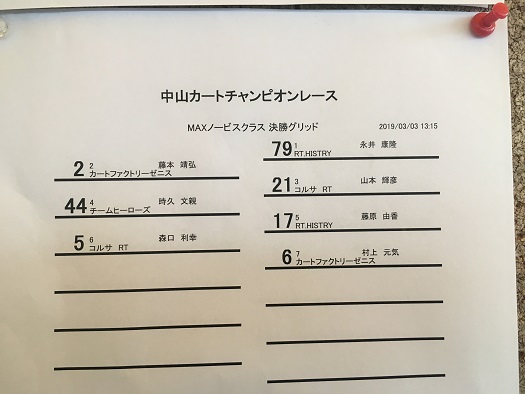 中山カートチャンピオンレース
MAXノービスクラス 決勝グリッド
2019/03/03 13:15
79 1 永井 康隆
RT.HISTRY
2 2 藤本 靖弘
カートファクトリーゼニス
21 3 山本 輝彦
コルサ RT
44 4 時久 文親
チームヒーローズ
17 5 藤原 由香
RT.HISTRY
5 6 森口 利幸
コルサ RT
6 7 村上 元気
カートファクトリーゼニス